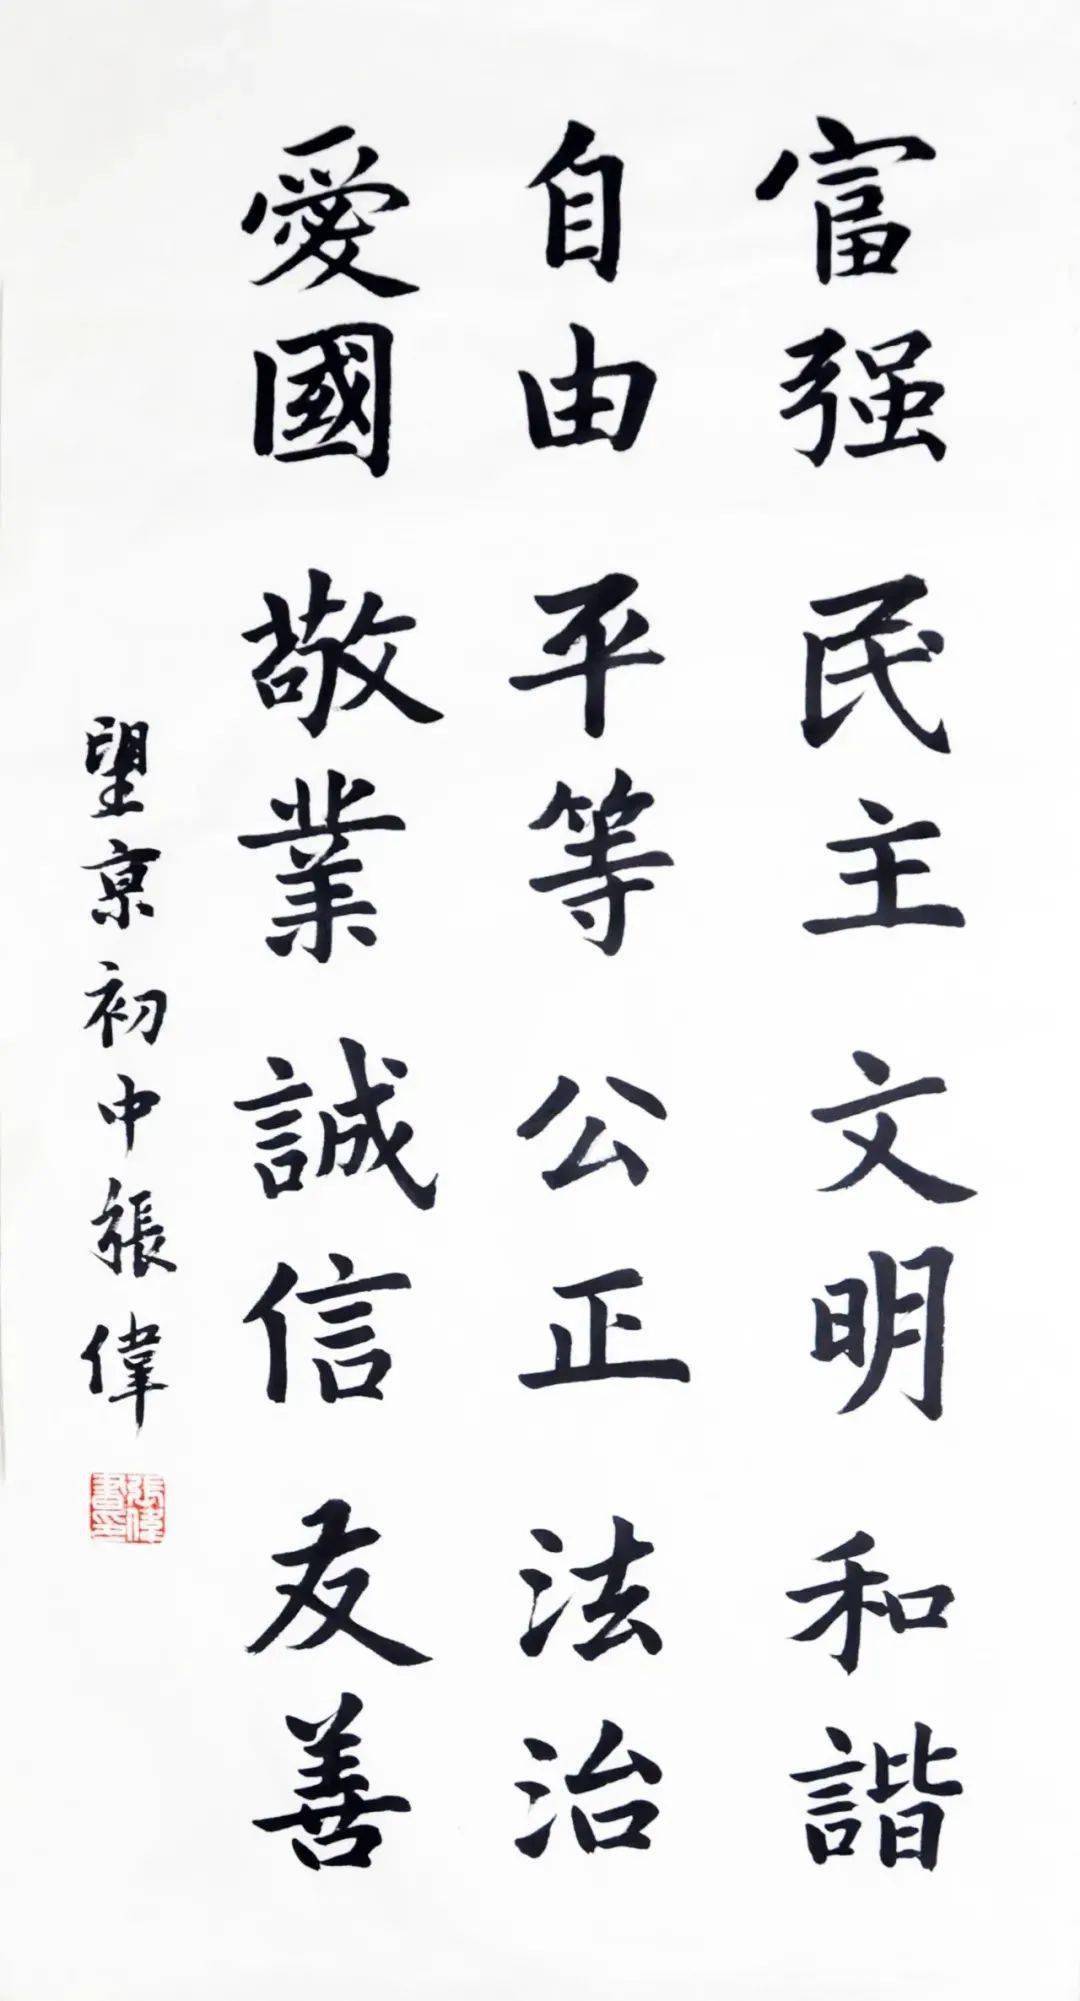 富强 民主 文明 和諧
自由 平等 公正 法治
愛國 敬業 誠信 友善
望京初中張偉
張偉書印